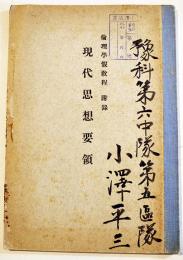 豫科第六中隊第五區隊
小澤平三
倫理學假教程 附錄
現代思想要領